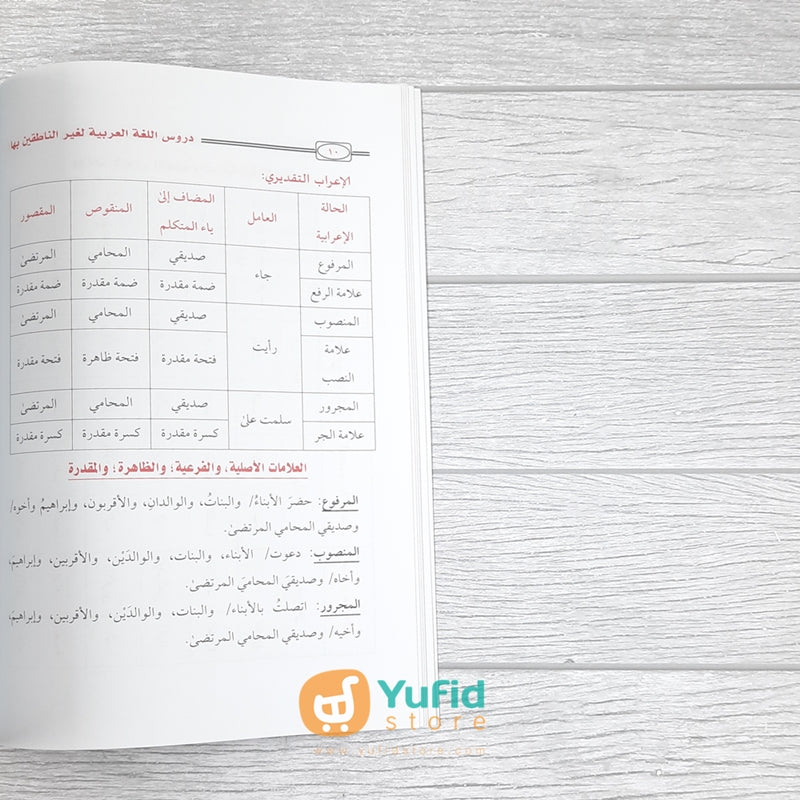 دروس اللغة العربية لغير الناطقين بها
١٠
الإعراب التقديري:
الحالة الإعرابية العامل المضاف إلىٰ ياء المتكلم المنقوص المقصور
المرفوع جاء صديقي المحامي المرتضىٰ
علامة الرفع ضمة مقدرة ضمة مقدرة ضمة مقدرة
المنصوب رأيت صديقي المحامي المرتضىٰ
علامة النصب فتحة مقدرة فتحة ظاهرة فتحة مقدرة
المجرور سلمت علىٰ صديقي المحامي المرتضىٰ
علامة الجر كسرة مقدرة كسرة مقدرة كسرة مقدرة
العلامات الأصلية، والفرعية؛ والظاهرة؛ والمقدرة
المرفوع: حضرَ الأبناءُ/ والبناتُ، والوالدانِ، والأقربون، وإبراهيمُ وأخوه/
وصديقي المحامي المرتضىٰ.
المنصوب: دعوت/ الأبناء، والبنات، والوالدَيْن، والأقربين، وإبراهيمَ،
وأخاه/ وصديقيَ المحاميَ المرتضىٰ.
المجرور: اتصلتُ بالأبناء/ والبنات، والوالدَيْن، والأقربين، وإبراهيمَ،
وأخيه/ وصديقي المحامي المرتضىٰ.
Yufid
store
www.yufidstore.com